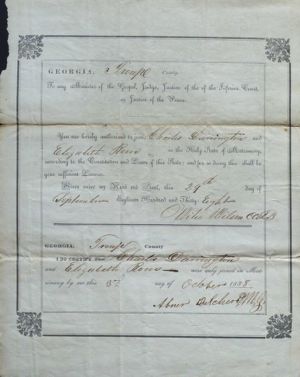 GEORGIA: Troup County.
To any Minister of the Gospel, Judge, Justice of the of the Inferior Court,
or Justice of the Peace.
You are hereby authorized to join Charles Dunnington and
Elizabeth in the Holy State of Matrimony,
according to the Constitution and Laws of this State; and for so doing this shall be
your sufficient License.
Given under my Hand and Seal, this 29th day of
September Eighteen Hundred and Thirty Eight
Wilson CCO
GEORGIA: Troup County
I DO CERTIFY that Charles Dunnington
and Elizabeth were duly joined in Matri-
mony by me this day of October 1838.
Abner